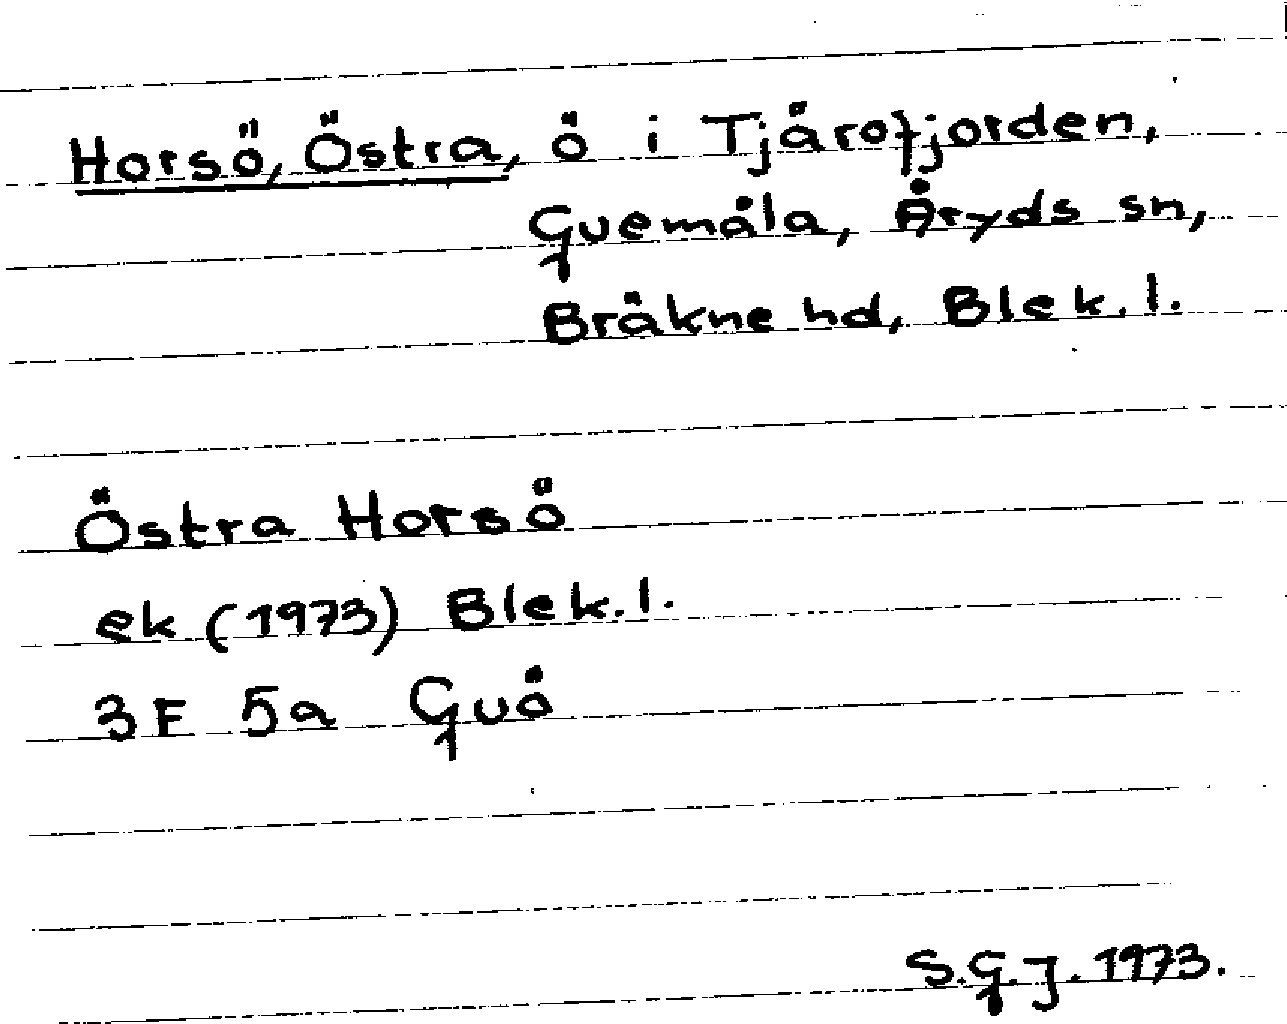 Horsö, Östra, ö i Tjärofjorden,
Guemåla, Åryds sn,
Bräkne hd, Blek. l.
Östra Horsö
ek (1973) Blek. l.
3F 5a Guö
S.G.J. 1973.